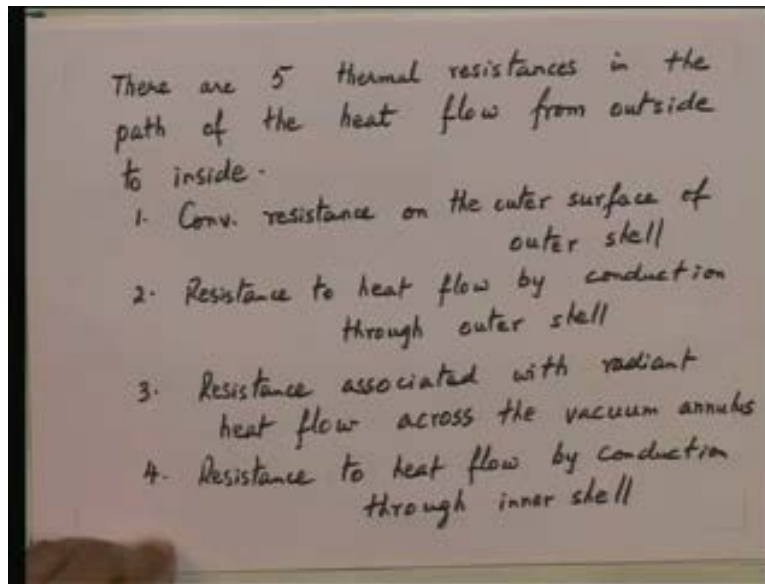 There are 5 thermal resistances in the
path of the heat flow from outside
to inside.
1. Conv. resistance on the outer surface of
outer shell
2. Resistance to heat flow by conduction
through outer shell
3. Resistance associated with radiant
heat flow across the vacuum annulus
4. Resistance to heat flow by conduction
through inner shell